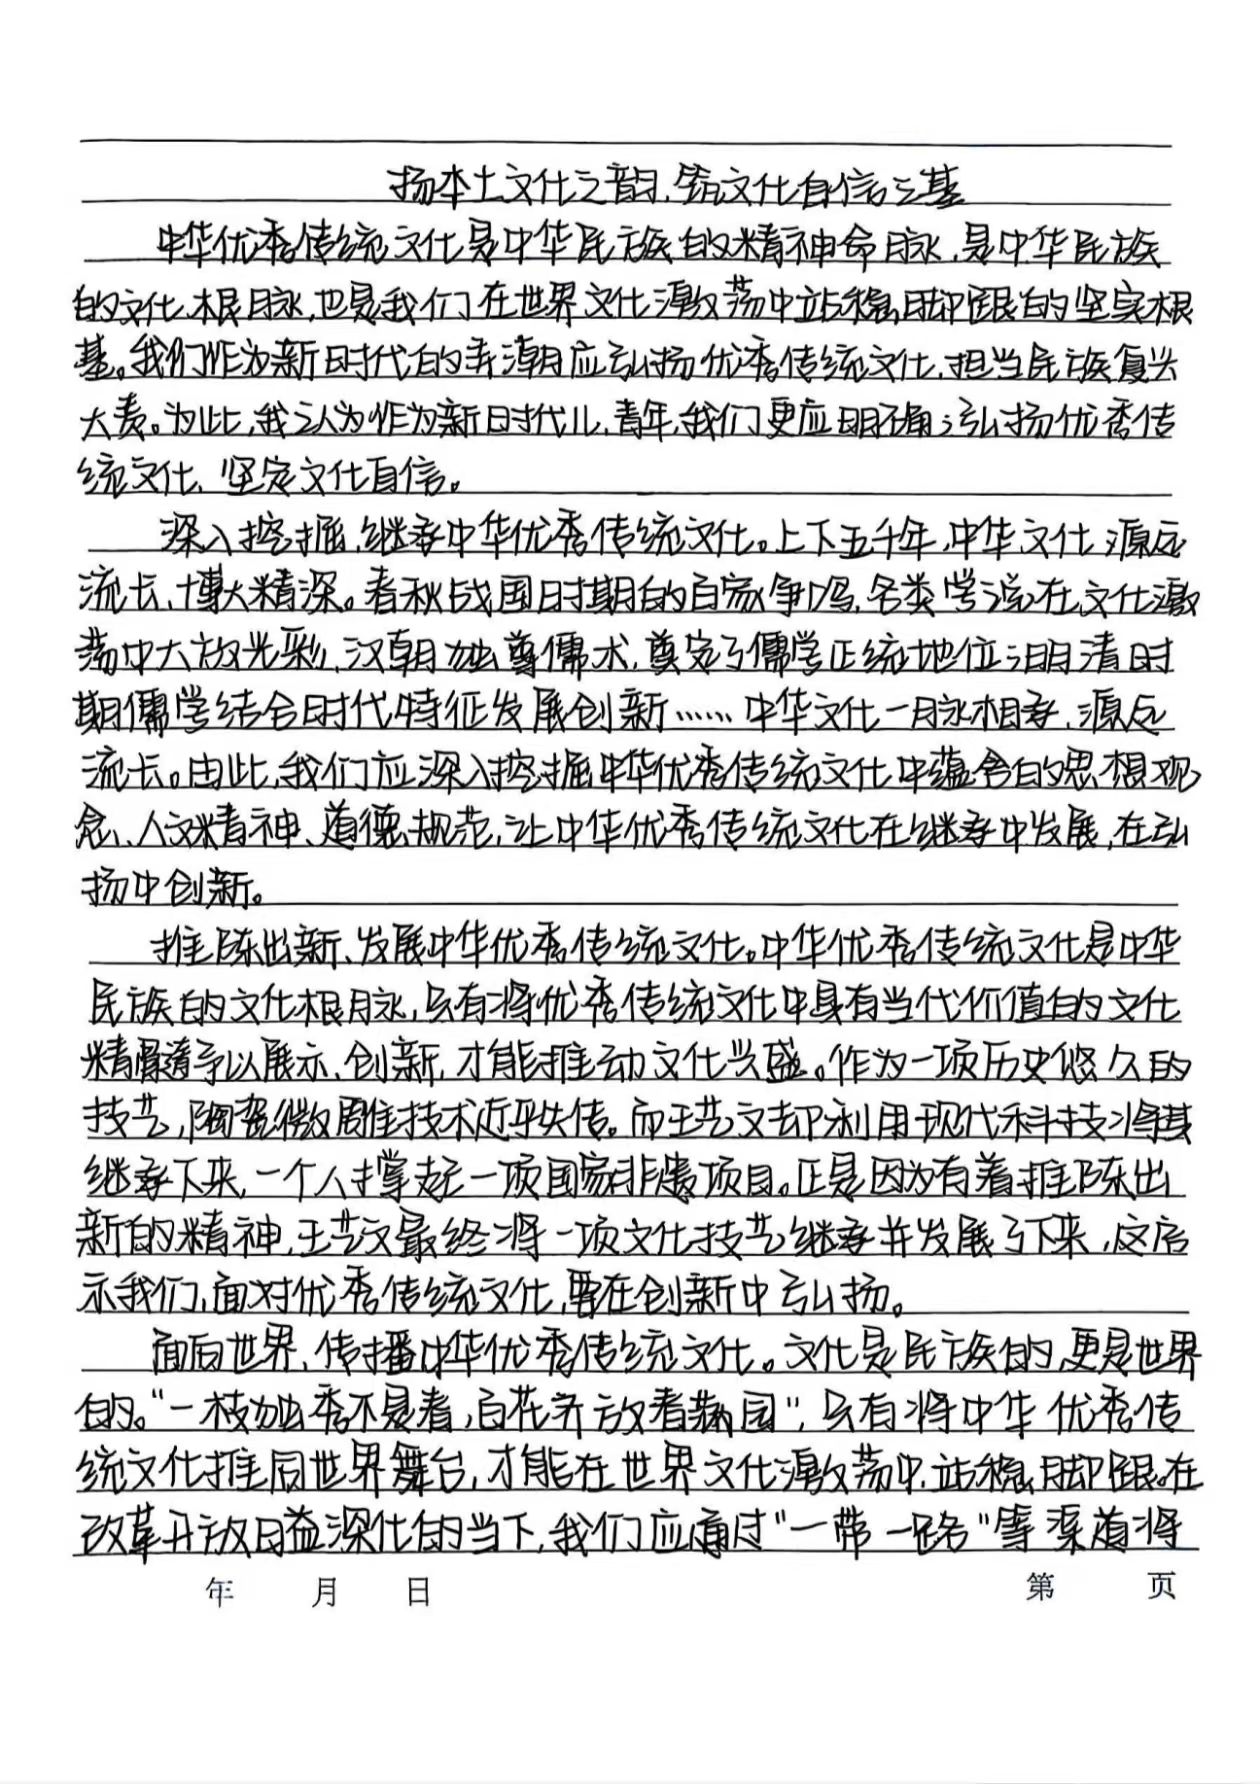 扬本土文化之韵,筑文化自信之基
中华优秀传统文化是中华民族的精神命脉,是中华民族
的文化根脉,也是我们在世界文化激荡中站稳脚跟的坚实根
基。我们作为新时代的弄潮应弘扬优秀传统文化,担当民族复兴
大责。为此,我认为作为新时代儿,青年,我们更应明确;弘扬优秀传
统文化、坚定文化自信。
深入挖掘,继承中华优秀传统文化。上下五千年,中华文化源远
流长、博大精深。春秋战国时期的百家争鸣,各类学说在文化激
荡中大放光彩,汉朝独尊儒术,奠定了儒学正统地位;明清时
期儒学结合时代特征发展创新……中华文化一脉相承,源远
流长。由此,我们应深入挖掘中华优秀传统文化中蕴含的思想观
念、人文精神、道德规范,让中华优秀传统文化在继承中发展,在弘
扬中创新。
推陈出新、发展中华优秀传统文化。中华优秀传统文化是中华
民族的文化根脉,只有将优秀传统文化中具有当代价值的文化
精髓予以展示、创新,才能推动文化兴盛。作为一项历史悠久的
技艺,陶瓷微雕技术近乎失传。而王艺文却利用现代科技将其
继承下来,一个人撑起一项国家非遗项目。正是因为有着推陈出
新的精神,王艺文最终将一项文化技艺继承并发展了下来,这启
示我们,面对优秀传统文化,要在创新中弘扬。
面向世界,传播中华优秀传统文化。文化是民族的,更是世界
的。“一枝独秀不是春,百花齐放春满园”,只有将中华优秀传
统文化推向世界舞台,才能在世界文化激荡中站稳脚跟。在
改革开放日益深化的当下,我们应通过“一带一路”等渠道将
年 月 日 第 页